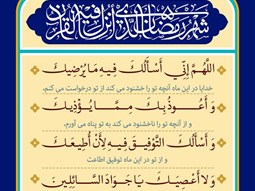 شهر رمضان الذی انزل فیه القرآن
اَللّهُمَّ اِنّی اَسْأَلُکَ فیهِ ما یُرْضیکَ
خدایا در این ماه آنچه تو را خشنود می کند از تو درخواست می کنم،
وَ اَعُوذُ بِکَ مِمّا یُؤْذیکَ
و از آنچه تو را ناخشنود می کند به تو پناه می آورم،
وَ اَسْأَلُکَ التَّوْفیقَ فیهِ لِأَنْ اُطیعَکَ
و از تو در این ماه توفیق اطاعت
وَ لا اَعْصِیَکَ یا جَوادَ السّائِلینَ